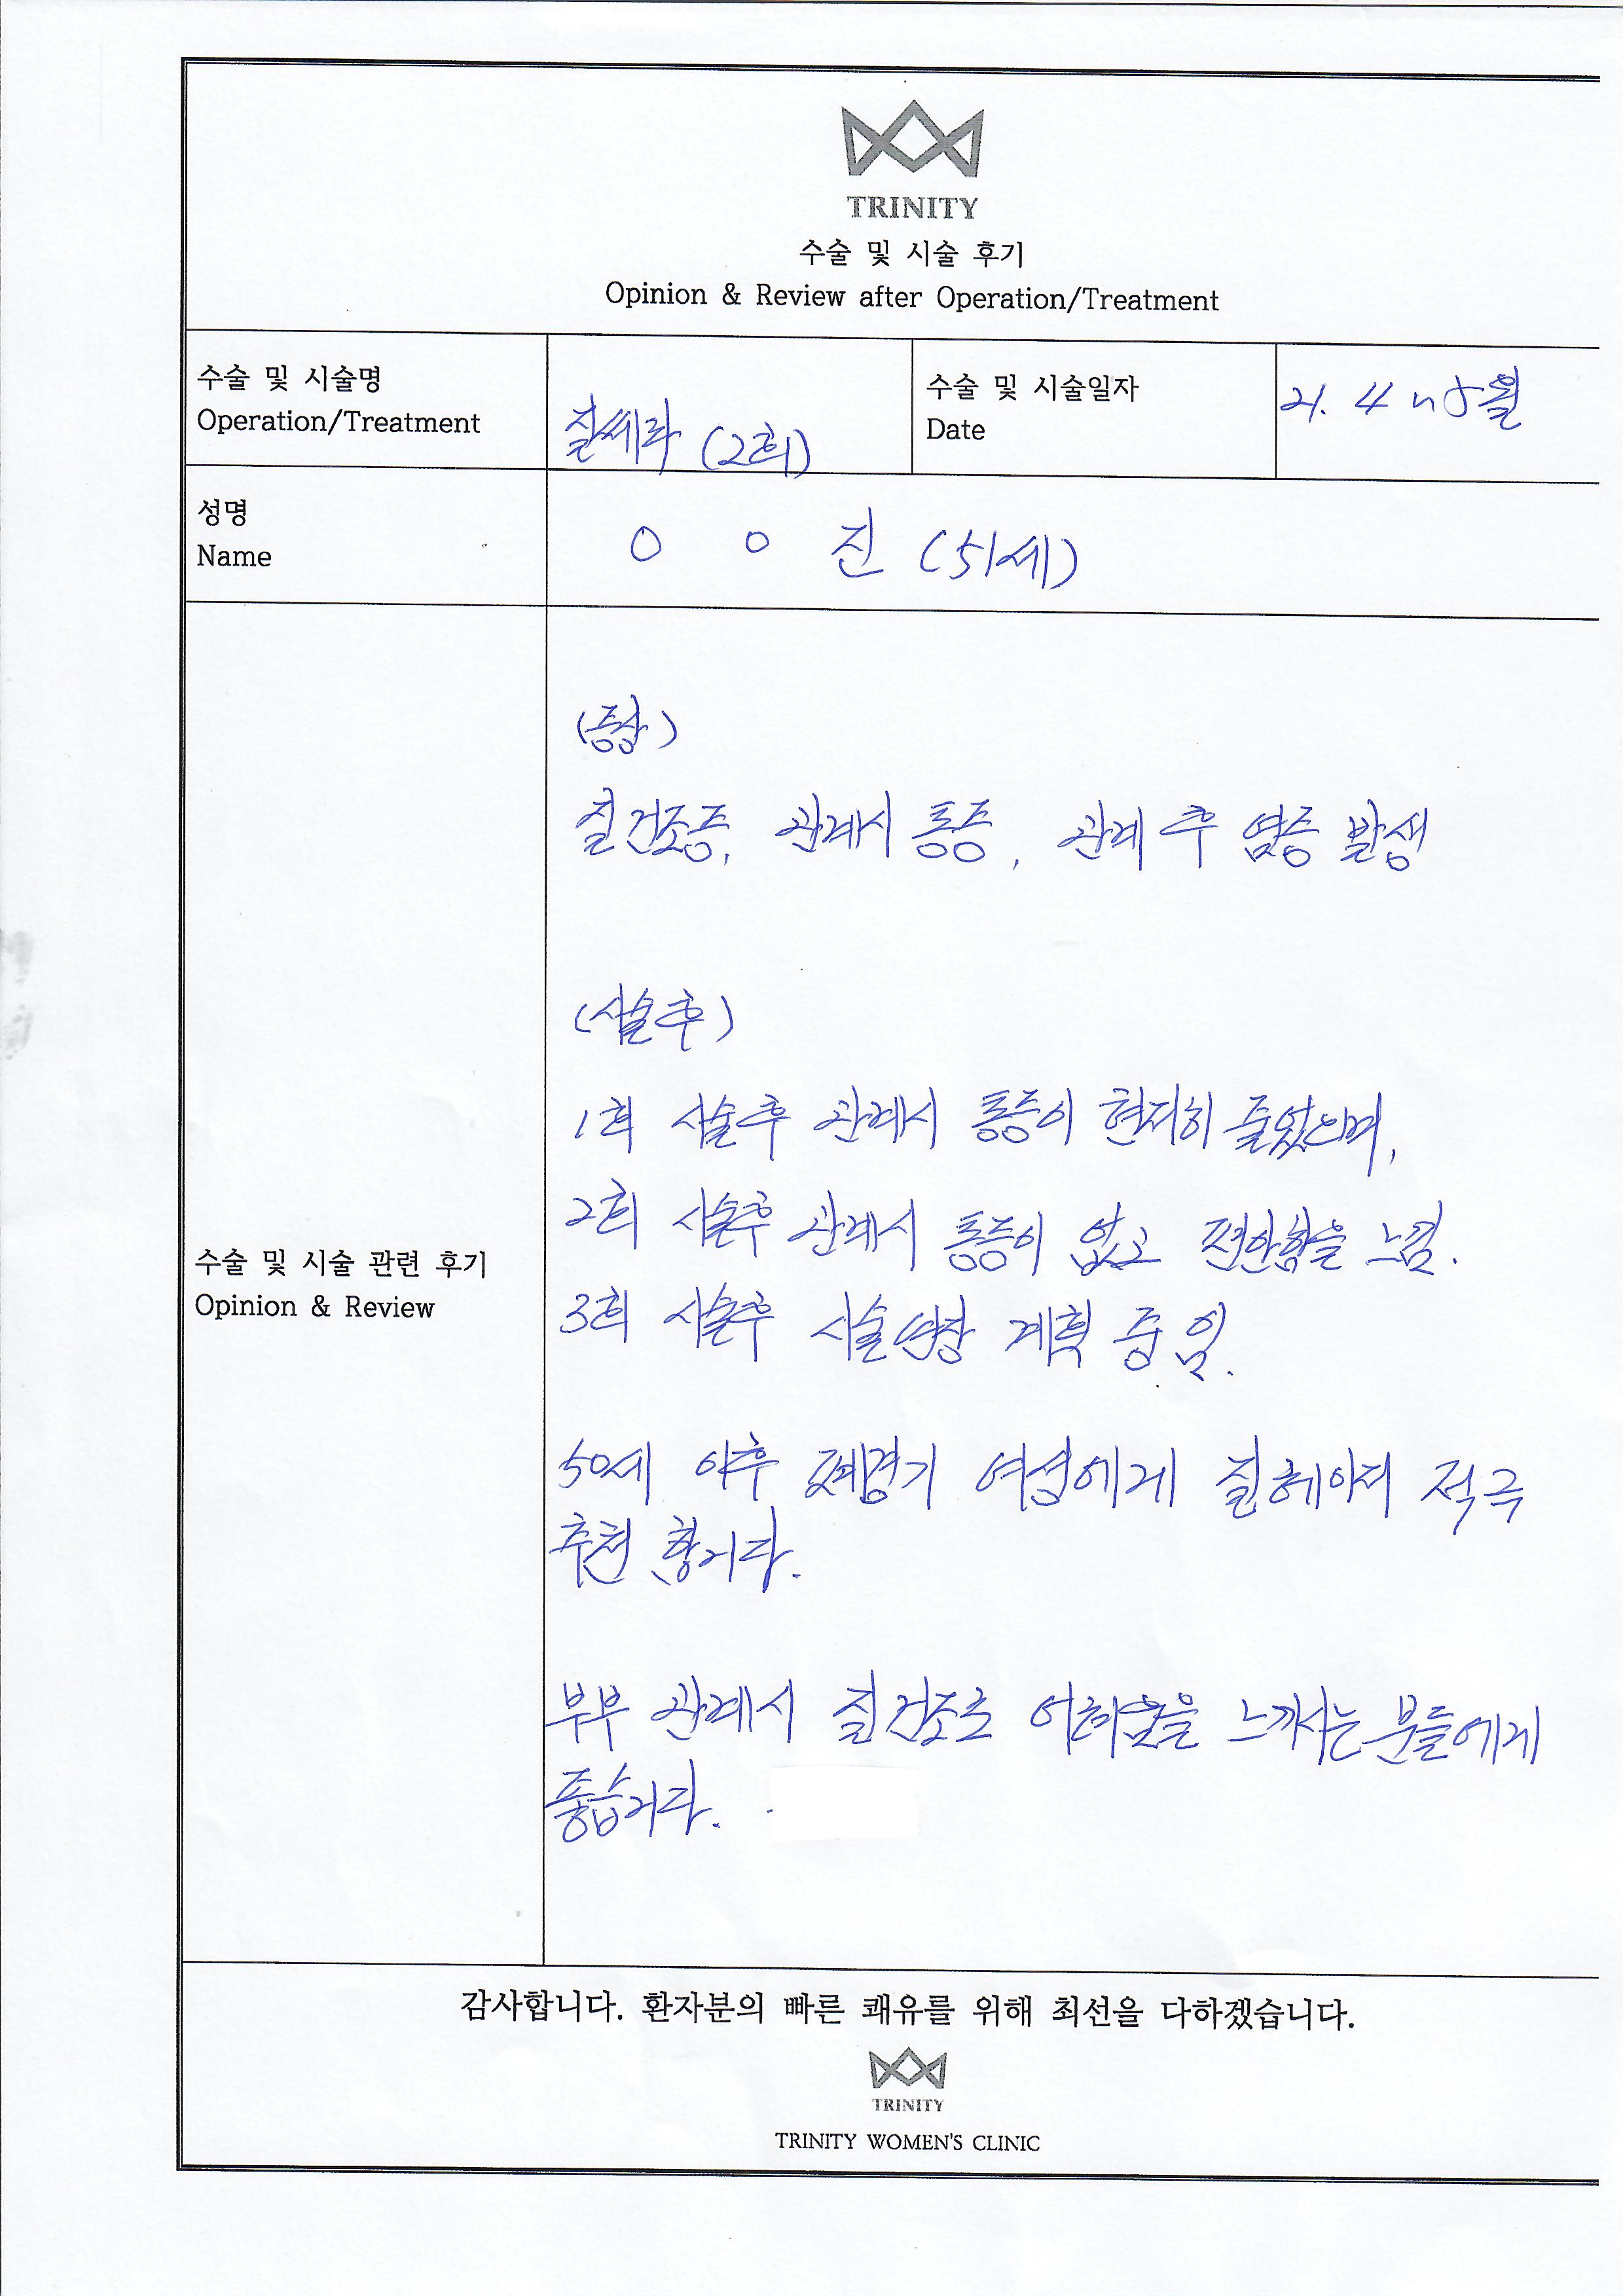 TRINITY
수술 및 시술 후기
Opinion & Review after Operation/Treatment
수술 및 시술명
Operation/Treatment
질쎄라 (2회)
수술 및 시술일자
Date
21. 4~5월
성명
Name
○ ○ 진 (51세)
수술 및 시술 관련 후기
Opinion & Review
(증상)
질건조증, 관계시 통증, 관계 후 염증 발생
(시술후)
1회 시술후 관계시 통증이 현저히 줄었으며,
2회 시술후 관계시 통증이 없고 편안함을 느낌.
3회 시술후 시술연장 계획 중 임.
50세 이후 폐경기 여성에게 적극
추천 합니다.
부부 관계시 질건조로 어려움을 느끼시는 분들에게
좋습니다.
감사합니다. 환자분의 빠른 쾌유를 위해 최선을 다하겠습니다.
TRINITY
TRINITY WOMEN'S CLINIC